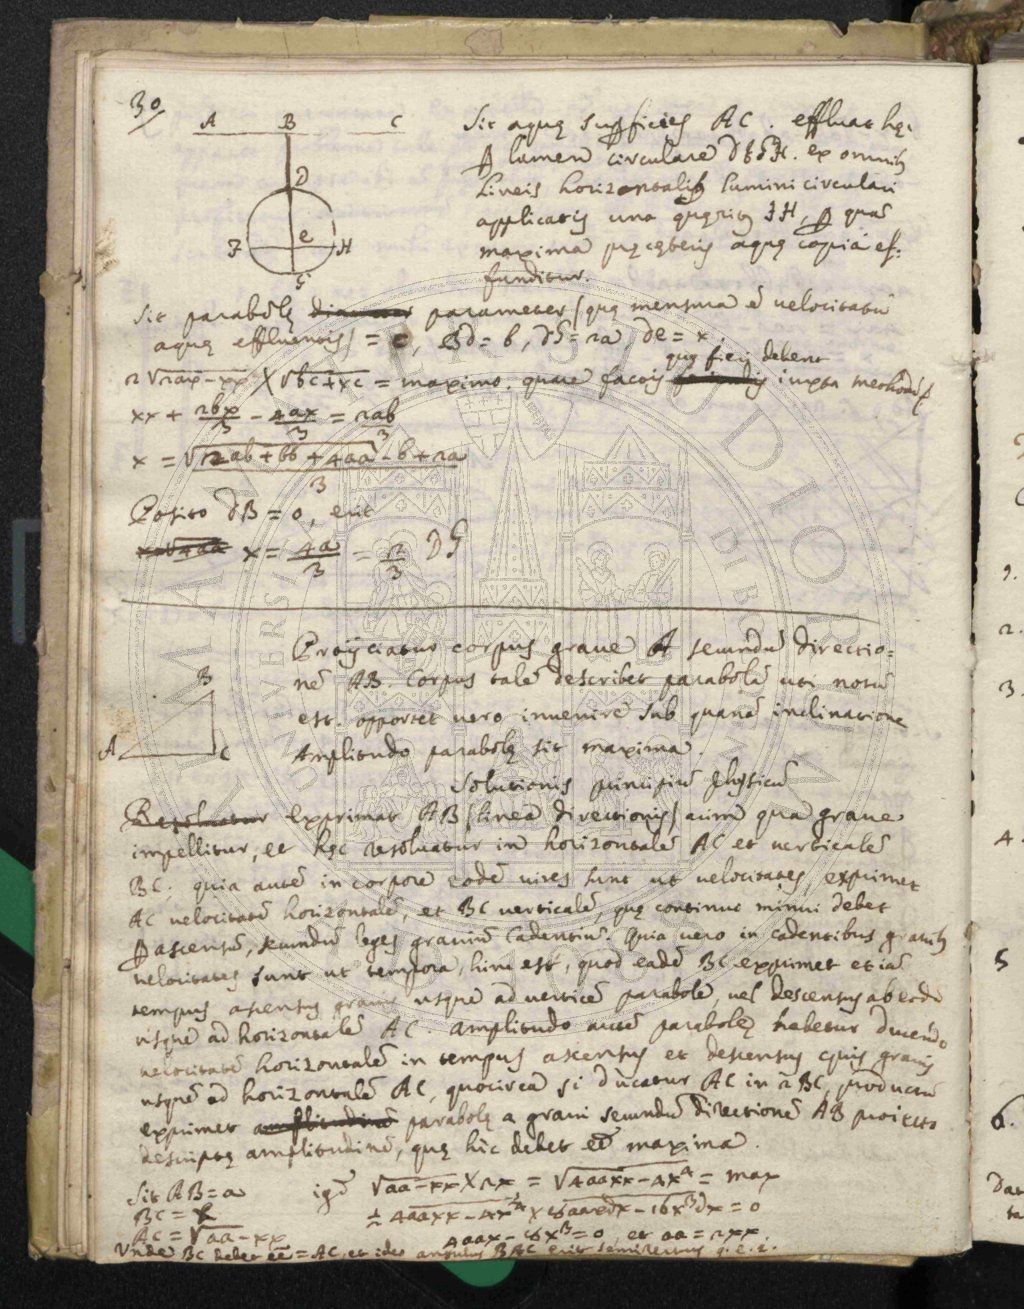 30
A B C
D
F e H
G
Sit aquę supficies AC. effluat hęc
p lumen circulare DFGH. ex omnibꝫ
Lineis horizontalibꝫ lumini circulari
applicatis una quęritꝫ FH, p quā
maxima pę cęteris aquę copia ef=
funditur.
Sit parabolę parameter (quę mensura ē velocitatū
aquę effluentis) = c, BD = b, DG = 2a, de = x.
2√2ax-xx X √bc+xc = maximo. quare factis quę fieri debent iuxta methodū
xx + 2bx/3 - 4ax/3 = 2ab/3
x = √12ab+bb+4aa - b+2a / 3
Posito DB = 0, erit
x = 4a/3 = 2/3 DG
Proijciatur corpus grave A secundū directio=
nē AB. Corpus tale describet parabolā uti notū
est. opportet vero invenire sub quanā inclinatione
Amplitudo parabolę sit maxima.
B
A C
Solutionis principiū Physicū
Resoluatur Exprimat AB (linea directionis) vim qua grave
impellitur, et hęc resoluatur in horizontalē AC et verticalē
BC. quia autē in corpore eodē vires sunt ut velocitates, exprimet
AC velocitatē horizontalē, et BC verticalē, quę continuo minui debet
p ascensū, secundū leges graviū cadentiū. Quia vero in cadentibus gravibꝫ
velocitates sunt ut tempora, hinc est, quod eadē BC exprimet etiā
tempus ascensus gravis usque ad verticē parabolę, vel descensus ab eodē
usque ad horizontalē AC. Amplitudo autē parabolę habetur ducendo
velocitatē horizontalē in tempus ascensus et descensus ejus gravis
usque ad horizontalē AC, quocirca si ducatur AC in 2BC, productū
exprimet amplitudinē parabolę a gravi secundū directionē AB proiecto
descriptę amplitudinē, quę hic debet eē maxima.
Sit AB = a
BC = x
AC = √aa-xx
igr √aa-xx X 2x = √4aaxx-4x⁴ = max
½ 4aaxx-4x⁴ x 8aaxdx-16x³dx = 0
4aax-8x³ = 0, et aa = 2xx.
Unde BC debet eē = AC, et ideo angulus BAC erit semirectus q.e.i.